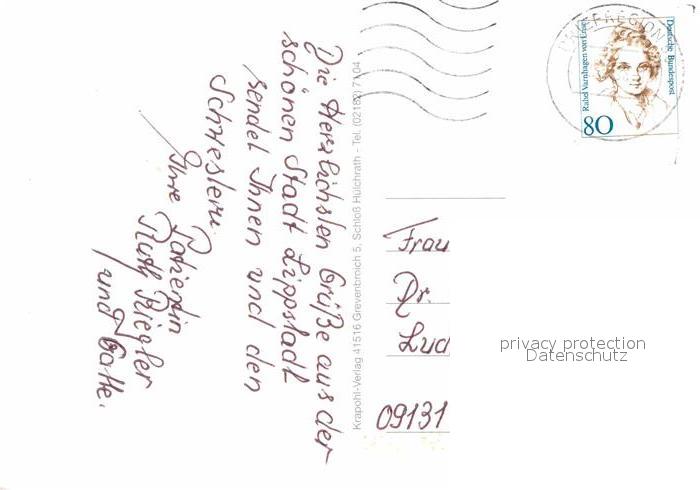 Die Herzlichsten Grüße aus der
schönen Stadt Lippstadt
sendet Ihnen und den
Schwestern.
Ihre Patientin
Ruth Riegler
und Gatte.
Krapohl-Verlag 41516 Grevenbroich 5, Schloß Hülchrath - Tel. (02182) 71 04
BRIEFREGION
Rahel Varnhagen von Ense
Deutsche Bundespost
80
Frau
Dr.
Lud
09131
privacy protection
Datenschutz